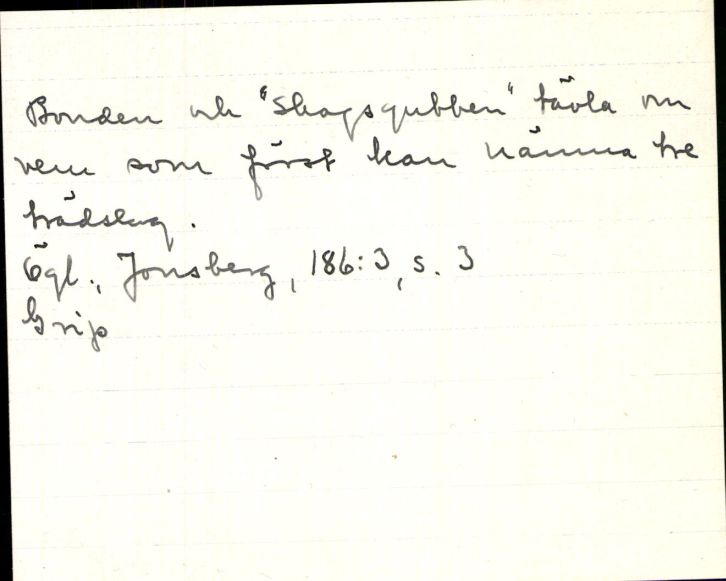 Bonden och "Skogsgubben" tävla om
vem som först kan nämna tre
trädslag.
Ögl., Jonsberg, 186:3, s. 3
Grip